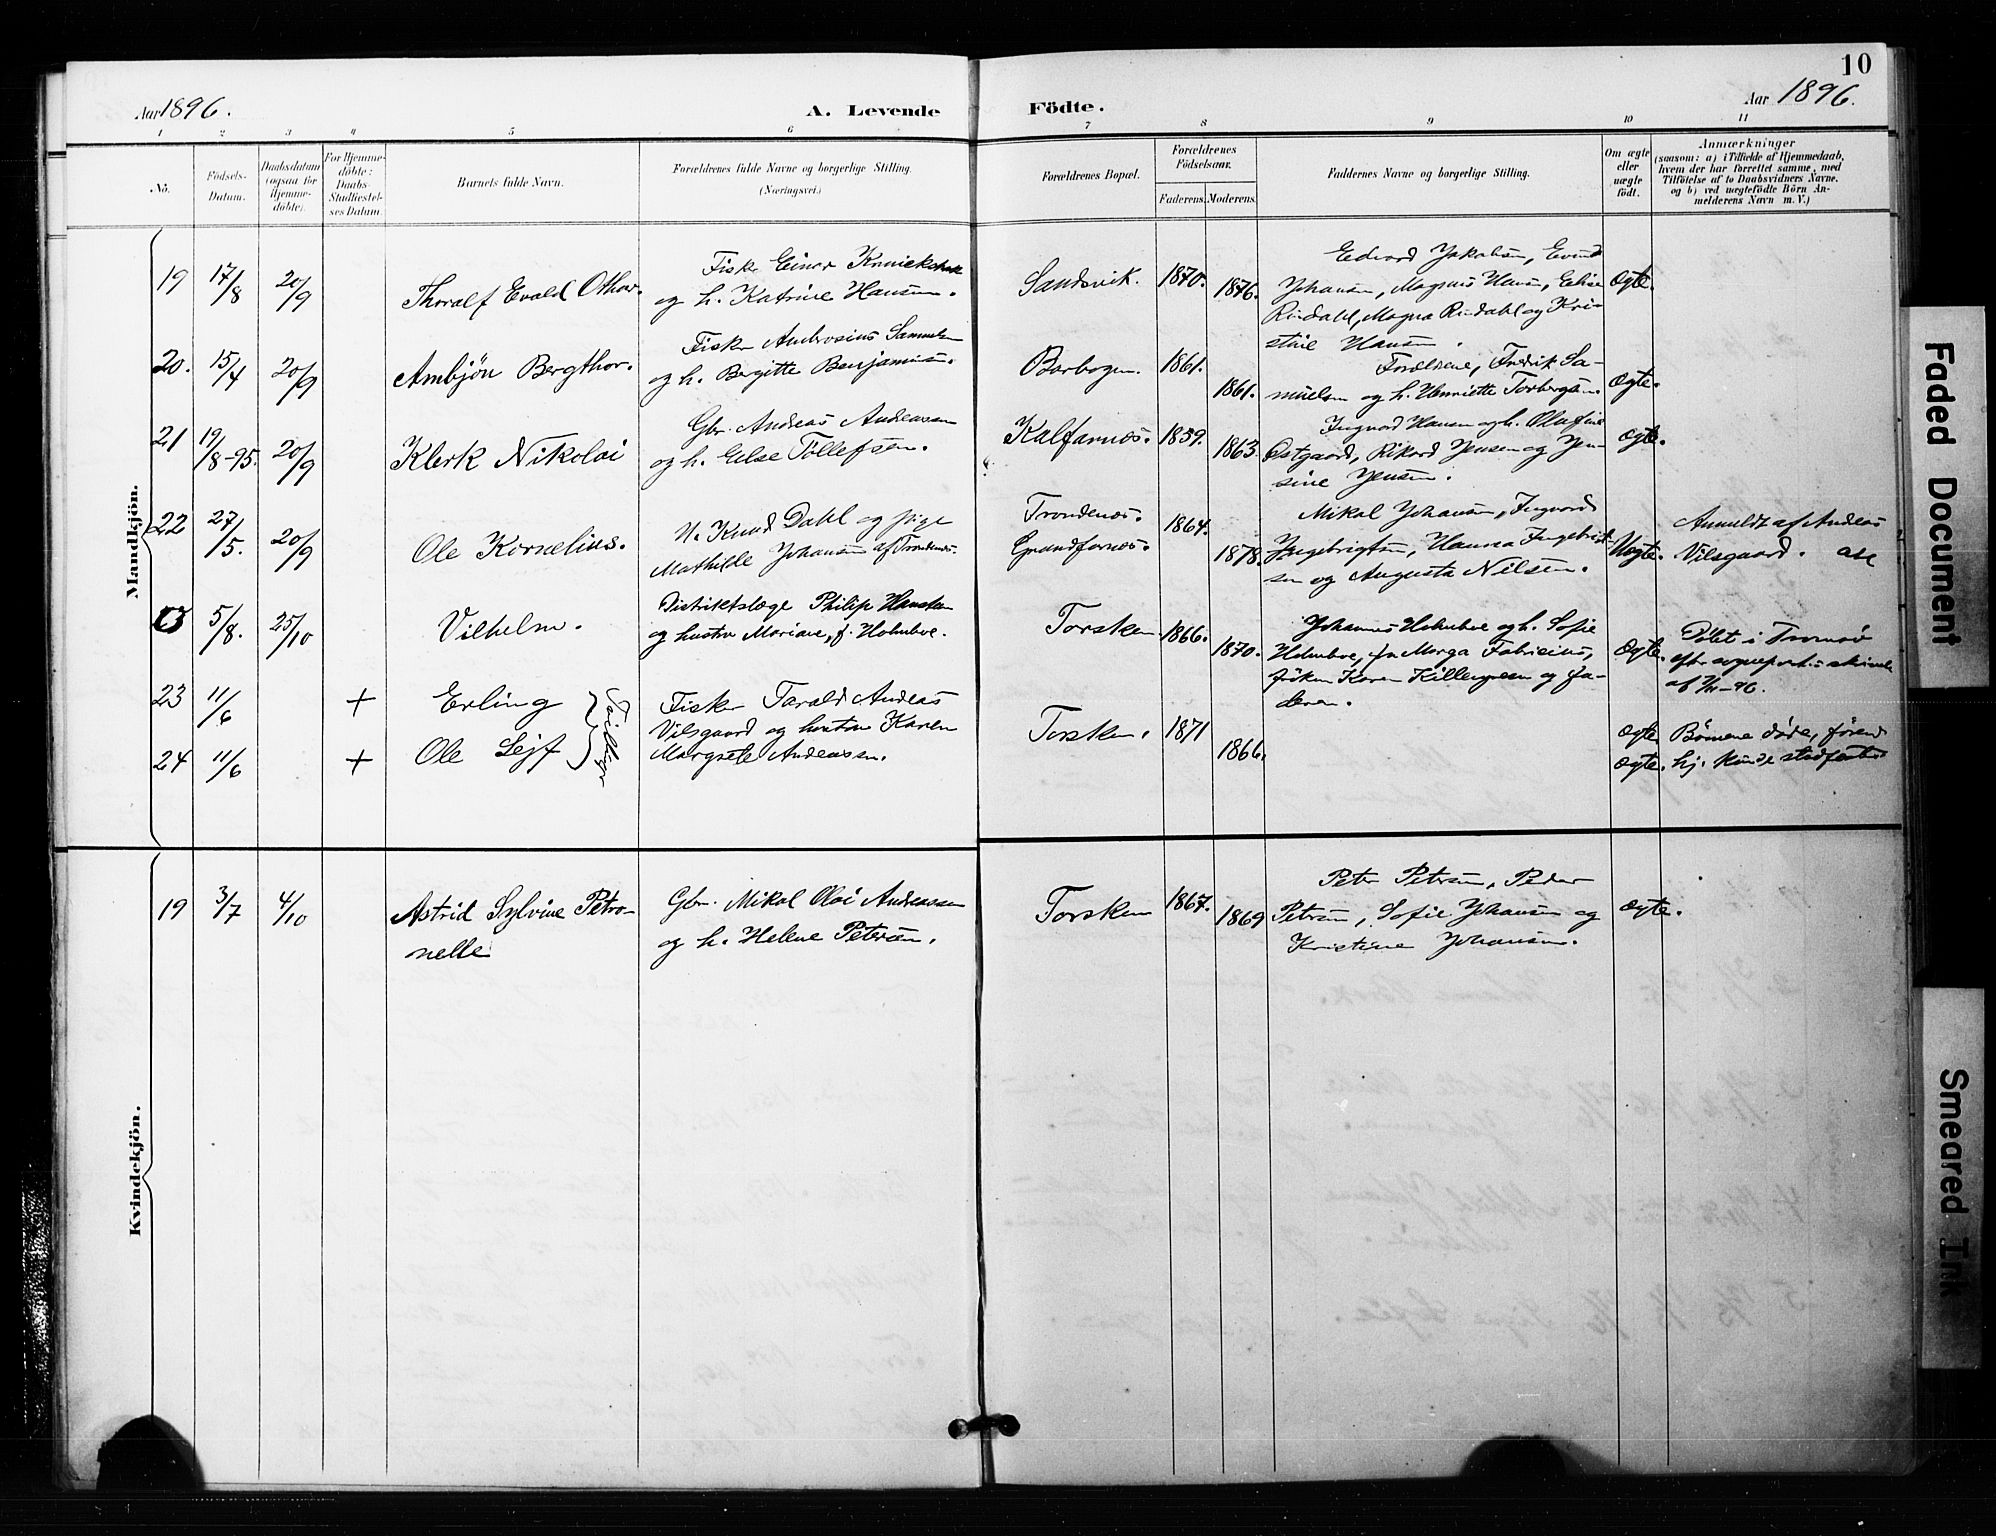 10
Aar 1896.
A. Levende Födte.
Aar 1896.
1 2 3 4 5 6 7 8 9 10 11
No.
Födsels-
Datum.
Daabsdatum
(ogsaa for
Hjemme-
döbte).
For Hjemme-
döbte:
Daabs-
Stadfæstel-
ses Datum.
Barnets fulde Navn.
Forældrenes fulde Navne og borgerlige Stilling.
(Næringsvei.)
Forældrenes Bopæl.
Forældrenes
Födselsaar.
Faderens.
Moderens.
Faddernes Navne og borgerlige Stilling.
Om ægte
eller
uægte
födt.
Anmærkninger
(saasom: a) i Tilfælde af Hjemmedaab,
hvem der har forrettet samme, med
Tilföielse af to Daabsvidners Navne.
og b) ved uægtefödte Börn An-
melderens Navn m. V.)
Mandkjön.
19 17/8 20/9
Thoralf Evald Othar.
Fisker Einar
og h. Katrine Hansen.
Sandsvik. 1870. 1876.
Edvard Jakobsen,
Johansen, Magnus Hansen, Elise
Rindahl, Magna Rindahl og Kri-
stine Hansen.
Ægte.
20. 15/4 20/9
Ambjön Bergthor.
Fisker Ambrosius Samuelsen
og h. Bergitte Benjaminsen.
Barbogen. 1861. 1861.
Forældrene, Fredrik Sa-
muelsen og h. Henriette Torbergsen.
Ægte.
21 19/8-95. 20/9
Klerk Nikolai
Gbr. Andreas Andreassen
og h. Else Tollefsen.
Kalfarnes. 1859. 1863.
Ingvard Hansen og h. Olufine
Østgaard, Rikard Jensen og Jen-
sine Jensen.
Ægte.
22 27/5. 20/9
Ole Kornelius.
U. Knud Dahl og pige
Mathilde Johansen af Trondenes.
Trondenes.
Grundfarnes. 1864. 1878.
Mikal Johansen, Ingvard
Ingebrigtsen, Hanna Ingebrigt-
sen og Augusta Nilsen.
Uægte.
Anmeldt af Andreas
Vilsgaard.
5/8. 25/10
Vilhelm.
Distriktslæge Philip
og hustru Mariane, f. Holmboe.
Torsken 1866. 1870.
Johannes Holmboe og h. Sofie
Holmboe, fr. Marga Fabricius,
fröken Karen Killengreen og fa-
deren.
Ægte.
Döbt i Tromsö
23 11/6 +
Erling
24 11/6 +
Ole Lejf
Tvillinger
Fisker Tarald Andreas
Vilsgaard og hustru Karen
Margrete Andreassen.
Torsken. 1871 1866.
Ægte
Ægte.
Börnene döde, förend
hj. kunde stadfæstes.
Kvindekjön.
19 3/7 4/10
Astrid Sylvine Petro-
nelle
Gbr. Mikal Olai Andreassen
og h. Helene Petersen.
Torsken 1867. 1869
Peter Petersen, Peder
Petersen, Sofie Johansen og
Kristine Johansen.
Ægte.
Faded Document
Smeared Ink